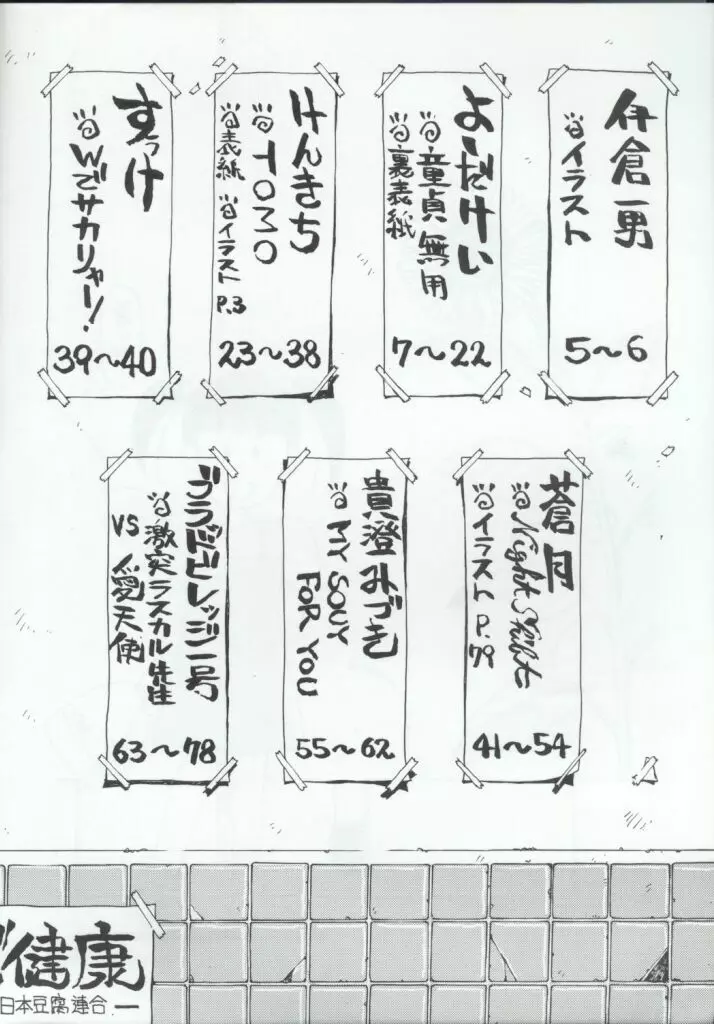 伊倉一男
イラスト
5〜6
よしだけい
童貞無用
裏表紙
7〜22
けんきち
TOMO
表紙 イラスト P.3
23〜38
すっけ
Wでサカリャー!
39〜40
蒼月
Night Shift
イラスト P.79
41〜54
貴澄みづき
MY SOUY
FOR YOU
55〜62
ブラッドビレッジ一号
激突ラスカル先生
VS 愛天使
63〜78
健康
日本豆腐連合